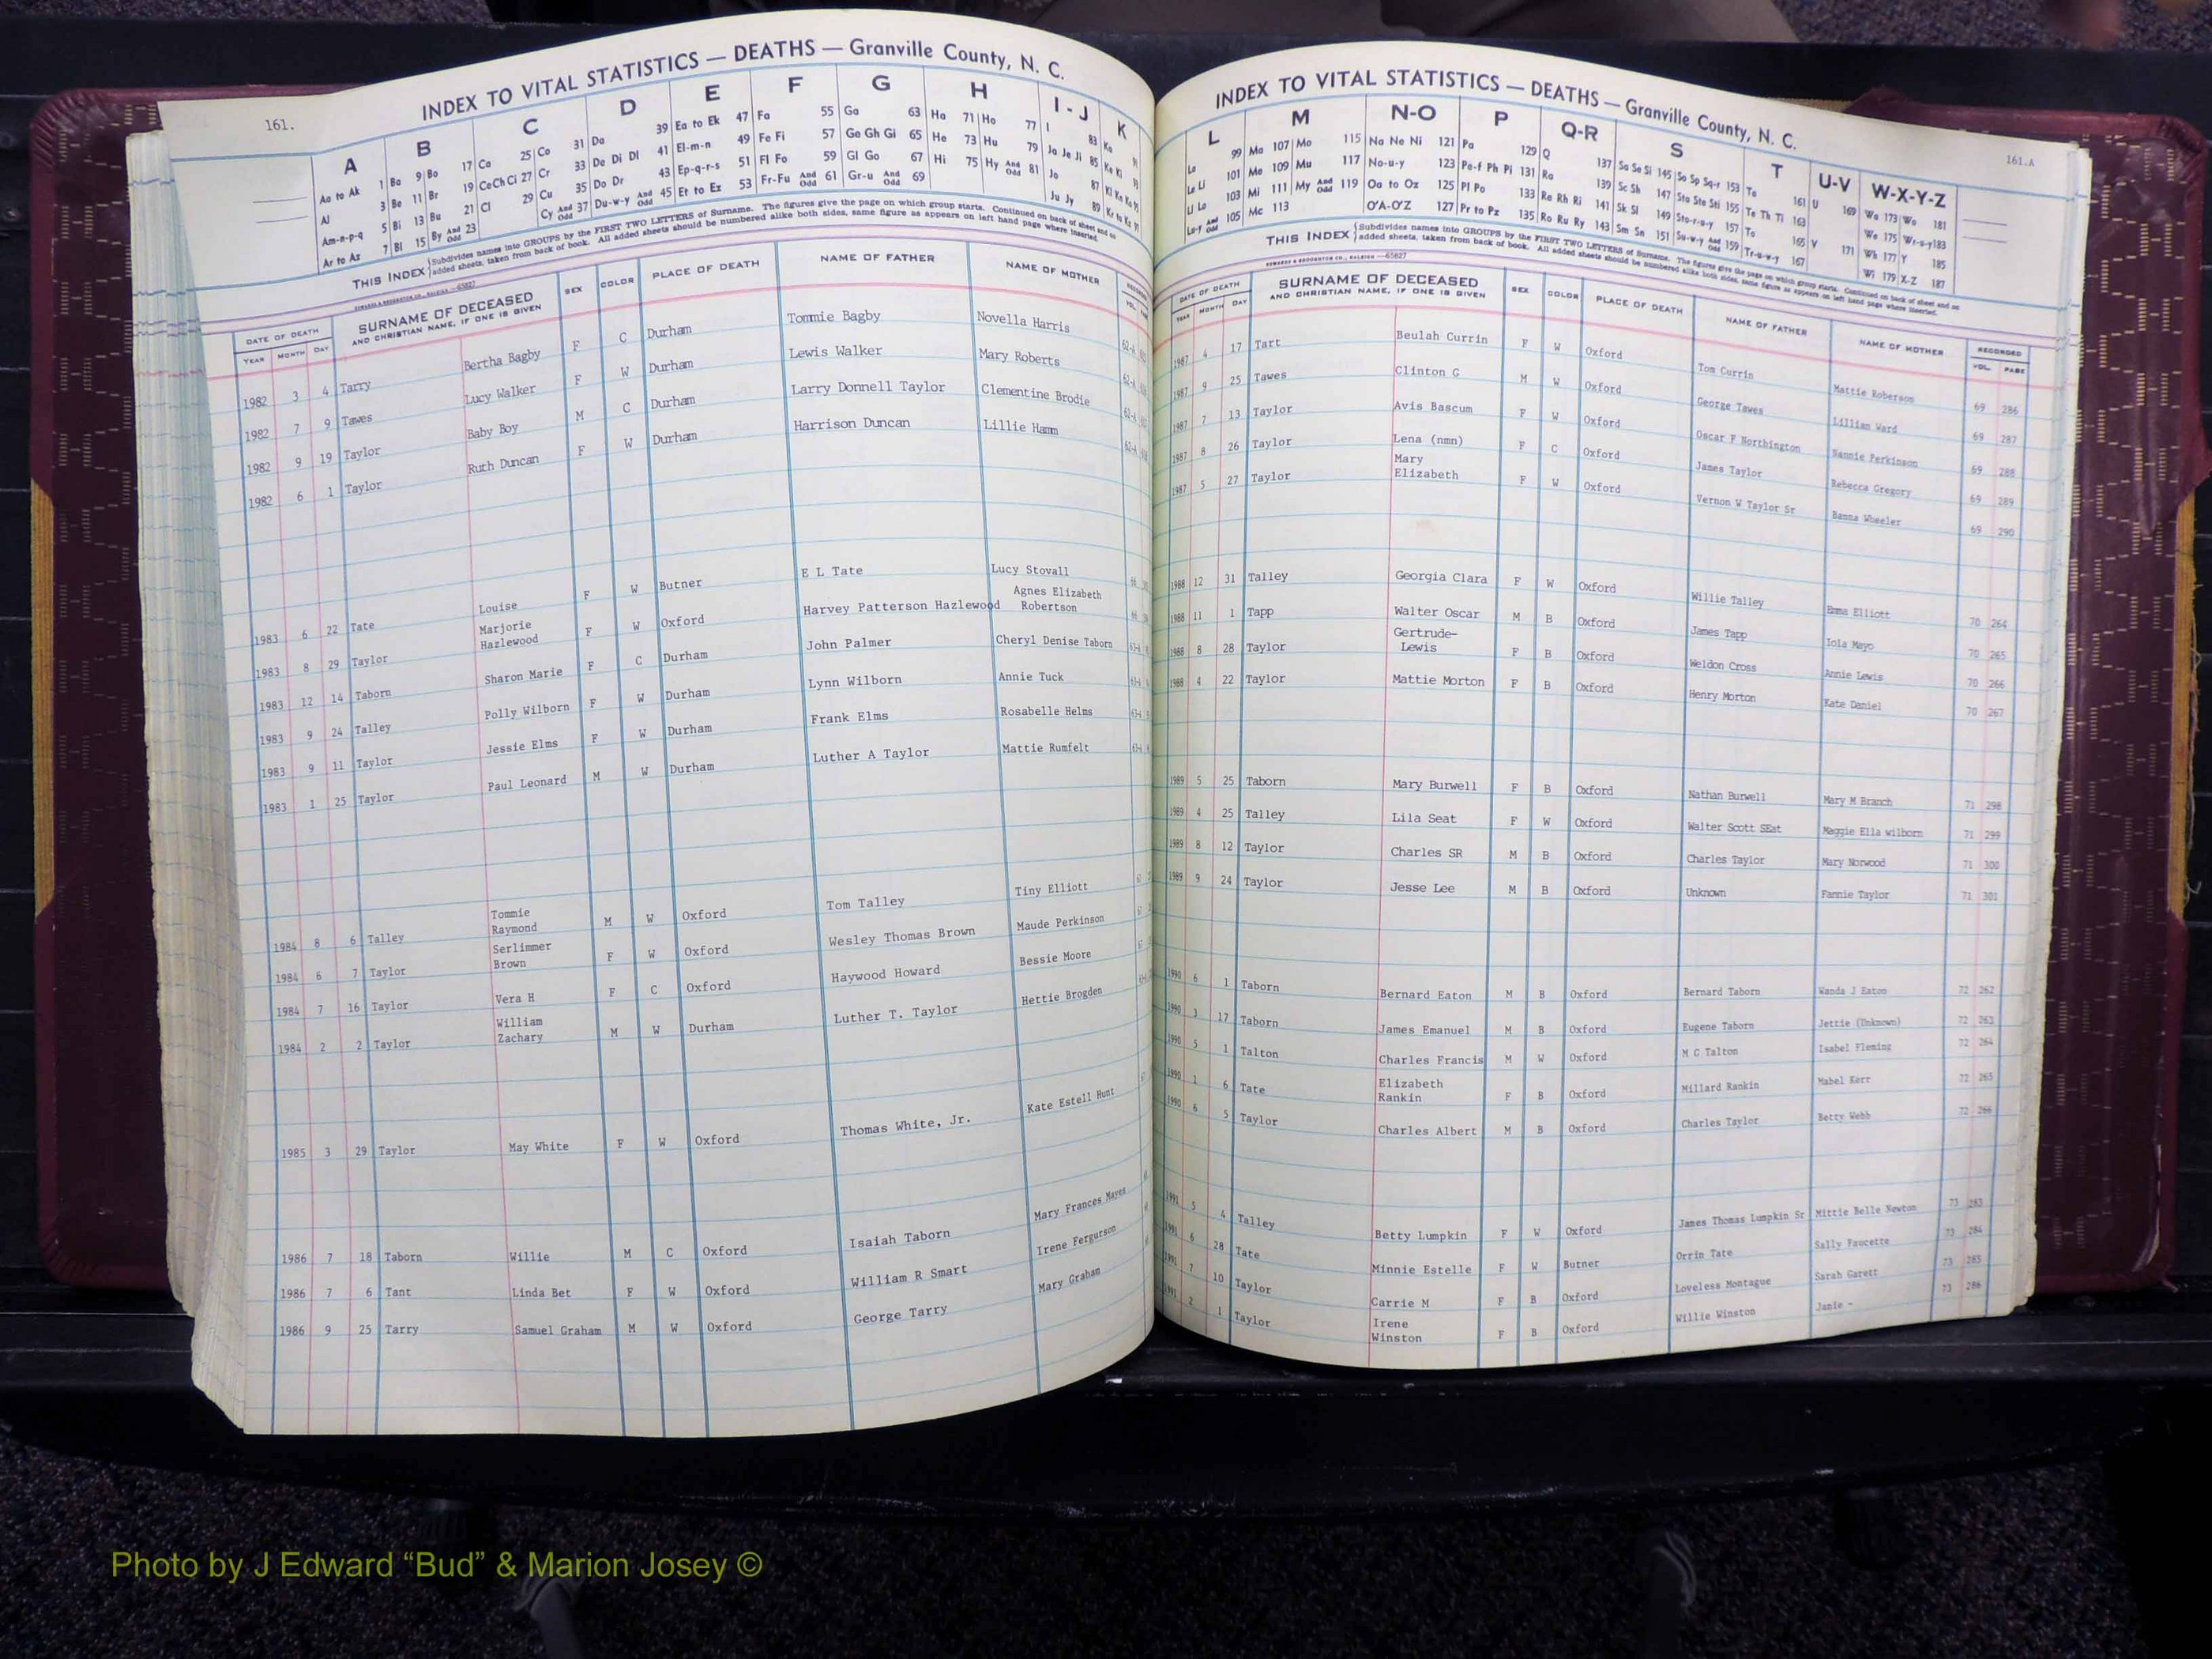 161.
INDEX TO VITAL STATISTICS — DEATHS — Granville County, N. C.
A B C D E F G H I - J K
Aa to Ak 1 Ba 9 Bo 17 Ca 25 Co 31 Da 39 Ea to Ek 47 Fa 55 Ga 63 Ha 71 Ho 77 I 83 Ka
Al 3 Be 11 Br 19 Ce Ch Ci 27 Cr 33 De Di Dl 41 El-m-n 49 Fe Fi 57 Ge Gh Gi 65 He 73 Hu 79 Ja Je Ji 85 Ke Ki
Am-n-p-q 5 Bi 13 Bu 21 Cl 29 Cu 35 Do Dr 43 Ep-q-r-s 51 Fl Fo 59 Gl Go 67 Hi 75 Hy And Odd 81 Jo 87 Kl Kn Ko
Ar to Az 7 Bl 15 By And Odd 23 Cy And Odd 37 Du-w-y And Odd 45 Et to Ez 53 Fr-Fu And Odd 61 Gr-u And Odd 69 Ju Jy 89 Kr to Kz
THIS INDEX Subdivides names into GROUPS by the FIRST TWO LETTERS of Surname. The figures give the page on which group starts. Continued on back of sheet and on
added sheets, taken from back of book. All added sheets should be numbered alike both sides, same figure as appears on left hand page where inserted.
DATE OF DEATH SURNAME OF DECEASED SEX COLOR PLACE OF DEATH NAME OF FATHER NAME OF MOTHER
YEAR MONTH DAY AND CHRISTIAN NAME, IF ONE IS GIVEN
1982 3 4 Tarry Bertha Bagby F C Durham Tommie Bagby Novella Harris
1982 7 9 Tawes Lucy Walker F W Durham Lewis Walker Mary Roberts
1982 9 19 Taylor Baby Boy M C Durham Larry Donnell Taylor Clementine Brodie
1982 6 1 Taylor Ruth Duncan F W Durham Harrison Duncan Lillie Hamm
1983 6 22 Tate Louise F W Butner E L Tate Lucy Stovall
1983 8 29 Taylor Marjorie Hazlewood F W Oxford Harvey Patterson Hazlewood Agnes Elizabeth Robertson
1983 12 14 Taborn Sharon Marie F C Durham John Palmer Cheryl Denise Taborn
1983 9 24 Talley Polly Wilborn F W Durham Lynn Wilborn Annie Tuck
1983 9 11 Taylor Jessie Elms F W Durham Frank Elms Rosabelle Helms
1983 1 25 Taylor Paul Leonard M W Durham Luther A Taylor Mattie Rumfelt
1984 8 6 Talley Tommie Raymond M W Oxford Tom Talley Tiny Elliott
1984 6 7 Taylor Serlimmer Brown F W Oxford Wesley Thomas Brown Maude Perkinson
1984 7 16 Taylor Vera H F C Oxford Haywood Howard Bessie Moore
1984 2 2 Taylor William Zachary M W Durham Luther T. Taylor Hettie Brogden
1985 3 29 Taylor May White F W Oxford Thomas White, Jr. Kate Estell Hunt
1986 7 18 Taborn Willie M C Oxford Isaiah Taborn Mary Frances Mayes
1986 7 6 Tant Linda Bet F W Oxford William R Smart Irene Fergurson
1986 9 25 Tarry Samuel Graham M W Oxford George Tarry Mary Graham
161.A
INDEX TO VITAL STATISTICS — DEATHS — Granville County, N. C.
L M N-O P Q-R S T U-V W-X-Y-Z
La 99 Ma 107 Mo 115 Na Ne Ni 121 Pa 129 Q 137 Sa Se Si 145 So Sp Sq-r 153 Ta 161 U 169 Wa 173 Wo 181
Le Li 101 Me 109 Mu 117 No-u-y 123 Pe-f Ph Pi 131 Ra 139 Sc Sh 147 Sta Ste Sti 155 Te Th Ti 163 V 171 We 175 Wr-u-y 183
Ll Lo 103 Mi 111 My And Odd 119 Oa to Oz 125 Pl Po 133 Re Rh Ri 141 Sk Sl 149 Sto-r-u-y 157 To 165 Wh 177 Y 185
Lu-y And Odd 105 Mc 113 O'A-O'Z 127 Pr to Pz 135 Ro Ru Ry 143 Sm Sn 151 Su-w-y And Odd 159 Tr-u-w-y 167 Wi 179 X-Z 187
THIS INDEX Subdivides names into GROUPS by the FIRST TWO LETTERS of Surname. The figures give the page on which group starts. Continued on back of sheet and on
added sheets, taken from back of book. All added sheets should be numbered alike both sides, same figure as appears on left hand page where inserted.
DATE OF DEATH SURNAME OF DECEASED SEX COLOR PLACE OF DEATH NAME OF FATHER NAME OF MOTHER RECORDED
YEAR MONTH DAY AND CHRISTIAN NAME, IF ONE IS GIVEN VOL. PAGE
1987 4 17 Tart Beulah Currin F W Oxford Tom Currin Mattie Roberson 69 286
1987 9 25 Tawes Clinton G M W Oxford George Tawes Lillian Ward 69 287
1987 7 13 Taylor Avis Bascum F W Oxford Oscar F Northington Nannie Perkinson 69 288
1987 8 26 Taylor Lena (nmn) F C Oxford James Taylor Rebecca Gregory 69 289
1987 5 27 Taylor Mary Elizabeth F W Oxford Vernon W Taylor Sr Banna Wheeler 69 290
1988 12 31 Talley Georgia Clara F W Oxford Willie Talley Emma Elliott 70 264
1988 11 1 Tapp Walter Oscar M B Oxford James Tapp Iola Mayo 70 265
1988 8 28 Taylor Gertrude- Lewis F B Oxford Weldon Cross Annie Lewis 70 266
1988 4 22 Taylor Mattie Morton F B Oxford Henry Morton Kate Daniel 70 267
1989 5 25 Taborn Mary Burwell F B Oxford Nathan Burwell Mary M Branch 71 298
1989 4 25 Talley Lila Seat F W Oxford Walter Scott SEat Maggie Ella wilborn 71 299
1989 8 12 Taylor Charles SR M B Oxford Charles Taylor Mary Norwood 71 300
1989 9 24 Taylor Jesse Lee M B Oxford Unknown Fannie Taylor 71 301
1990 6 1 Taborn Bernard Eaton M B Oxford Bernard Taborn Wanda J Eaton 72 262
1990 3 17 Taborn James Emanuel M B Oxford Eugene Taborn Jettie (Unknown) 72 263
1990 5 1 Talton Charles Francis M W Oxford M C Talton Isabel Fleming 72 264
1990 1 6 Tate Elizabeth Rankin F B Oxford Millard Rankin Mabel Kerr 72 265
1990 6 5 Taylor Charles Albert M B Oxford Charles Taylor Betty Webb 72 266
1991 5 4 Talley Betty Lumpkin F W Oxford James Thomas Lumpkin Sr Mittie Belle Newton 73 283
1991 6 28 Tate Minnie Estelle F W Butner Orrin Tate Sally Faucette 73 284
1991 7 10 Taylor Carrie M F B Oxford Loveless Montague Sarah Garett 73 285
1991 2 1 Taylor Irene Winston F B Oxford Willie Winston Janie - 73 286
Photo by J Edward “Bud” & Marion Josey ©